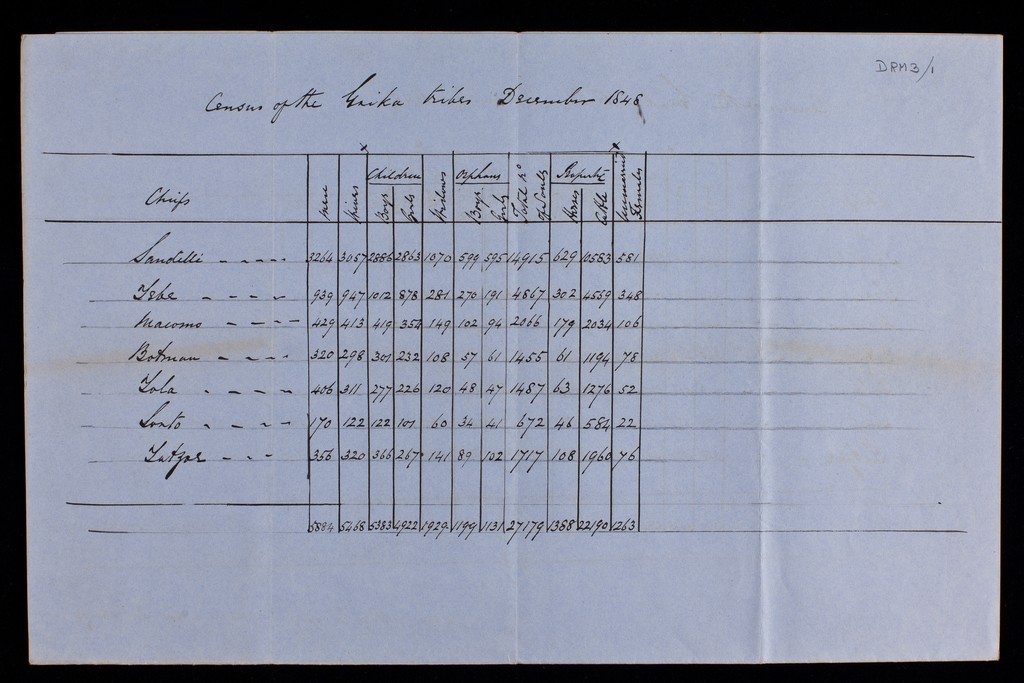 DRM3/1
Census of the Gaika tribes December 1848
Chiefs Men Wives Children Boys Girls Widows Orphans Boys Girls Total No of Souls Property Horses Cattle Unmarried Females
Sandilli - - - - 3264 3057 2886 2863 1070 599 595 14915 629 10583 581
Tebe - - - - 939 947 1012 878 281 270 191 4867 302 4559 348
Macomo - - - - 429 413 419 354 149 102 94 2066 179 2034 106
Botman - - - - 320 298 301 232 108 57 61 1455 61 1194 78
Tola - - - - 406 311 277 226 120 48 47 1487 63 1276 52
Sonto - - - - 170 122 122 101 60 34 41 672 46 584 22
356 320 366 267 141 89 102 1717 108 1960 76
5884 5468 5383 4922 1929 1199 1131 27179 1388 22190 1263